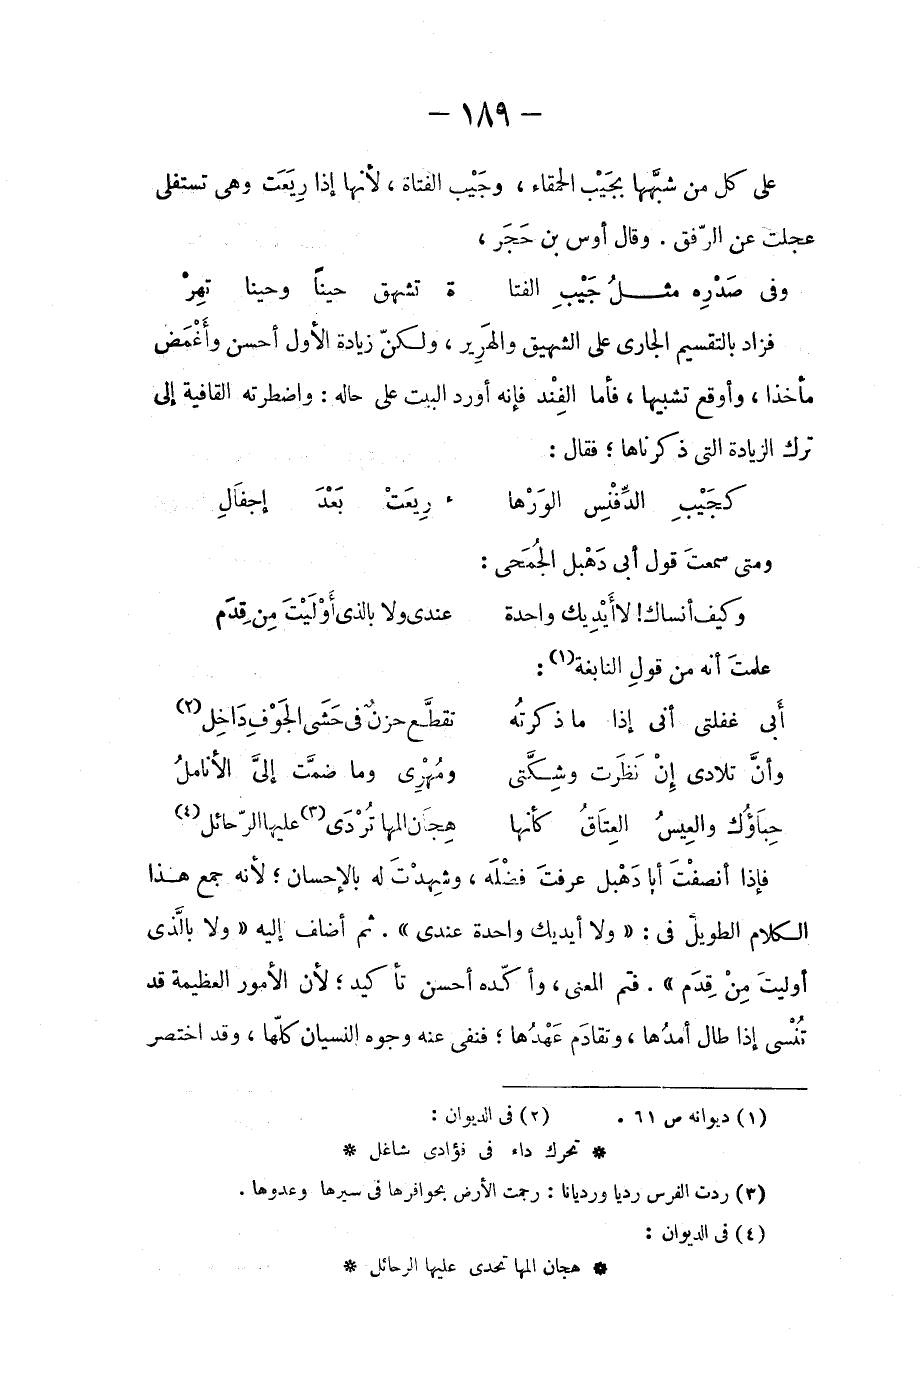 – ١٨٩ –
على كل من شبَّهها بجَيْب الحمقاء ، وجَيْب الفتاة ، لأنها إذا رِيَعَت وهى تستفلى
عجلت عن الرّفق . وقال أوس بن حَجَر ،
وفى صَدْرِه مثــلُ جَيْبِ الفتا ة تشهق حيناً وحينا تهِرْ
فزاد بالتقسيم الجارى على الشهيق والهَرِير ، ولكنّ زيادة الأول أحسن وأَغْمَض
مأخذا ، وأوقع تشبيها ، فأما الفِنْد فإنه أورد البيت على حاله : واضطرته القافية إلى
ترك الزيادة التى ذكرناها ؛ فقال :
كجَيْبِ الدِّفْنِس الوَرْها ء رِيعَتْ بَعْدَ إجفَالِ
ومتى سمعتَ قول أبى دَهْبل الجُمَحى :
وكيف أنساك! لا أَيْدِيك واحدة عندى ولا بالذى أَوْلَيْتَ مِن قِدَم
علمتَ أنه من قولِ النابغة(١) :
أَبى غفلتى أنى إذا ما ذكرتُه تقطَّع حزنٌ فى حَشَى الجَوْفِ دَاخِل(٢)
وأنَّ تلادى إِنْ نَظَرَت وشِكَّتى ومُهْرِى وما ضمَّت إلىَّ الأناملُ
حِبَاؤُك والعِيسُ العِتَاقُ كأنها هِجَان المها تُرْدَى(٣) عليها الرّحائل(٤)
فإذا أنصفْتَ أبا دَهْبل عرفتَ فضْلَه ، وشهِدْتَ له بالإحسان ؛ لأنه جمع هــذا
الكلام الطويلَ فى : « ولا أيديك واحدة عندى » . ثم أضاف إليه « ولا بالَّذى
أوليتَ مِنْ قِدَم » . فتم المعنى ، وأكّده أحسن تأكيد ؛ لأن الأمور العظيمة قد
تُنْسى إذا طال أمدُها ، وتقادَم عَهْدُها ؛ فنفى عنه وجوه النسيان كلّها ، وقد اختصر
(١) ديوانه ص ٦١ . (٢) فى الديوان :
* تحرك داء فى فؤادى شاغل *
(٣) ردت الفرس رديا ورديانا : رجمت الأرض بحوافرها فى سيرها وعدوها .
(٤) فى الديوان :
* هجان المها تحدى عليها الرحائل *